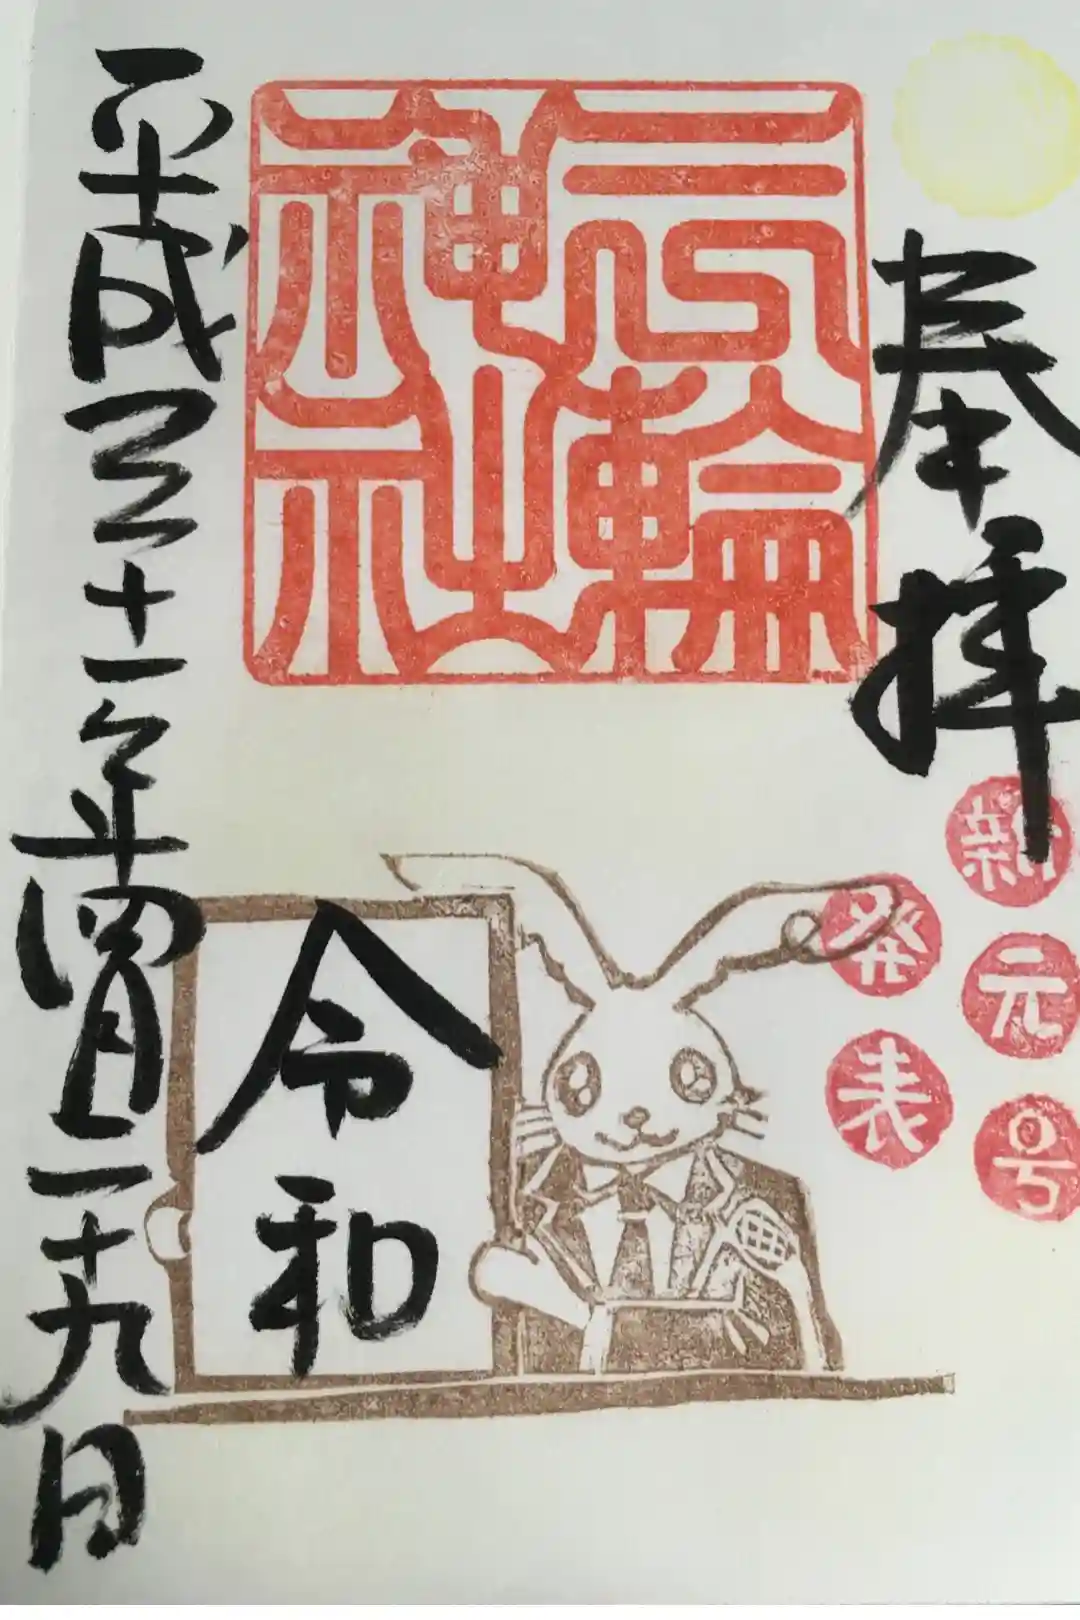 奉拝
新元号
発表
三輪
神社
令和
平成三十一年四月二十九日